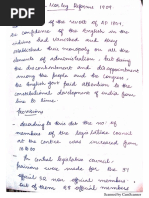 Morley Reforms 1909
of the revolt of AD 1857,
the confidence of the English on the
Indians had vanished and they
established their monopoly on all the
domains of administration, but being
the discontentment and disappointment
among the people and the Congress
the English govt paid attention to the
constitutional development of india from
time to time.
Provisions
According to this Act the no. of
members of the legislative council
at the centre was increased from
16 to 60
In Central legislative council
provisions were made for the 37
official 32 members
out of them 28 official members